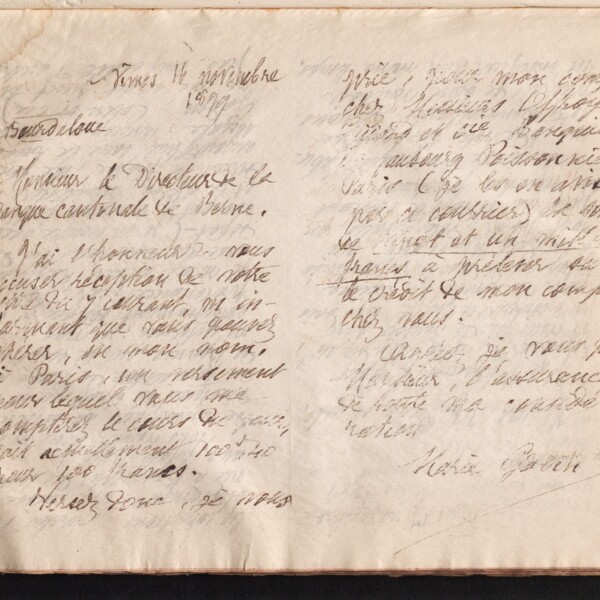 Nîmes 16 novembre
1899
Bourdaloue
Monsieur le Directeur de la
Banque cantonale de Berne.
J'ai l'honneur de vous
accuser réception de votre
du 7 courant, m'in-
formant que vous pouvez
opérer, en mon nom,
à Paris, un versement
pour lequel vous me
compterez le cours du jour,
soit actuellement 100f 40
pour 100 francs.
Versez donc, je vous
prie, pour mon comp
chez Messieurs
et Cie, Banqui
faubourg Poissonniè
Paris (je les en avis
par ce courrier) la
de vingt et un mille
francs à prélever
le crédit de mon comp
chez vous.
Agréez, je vous p
Monsieur, l'assurance
de toute ma considé
ration
Marie